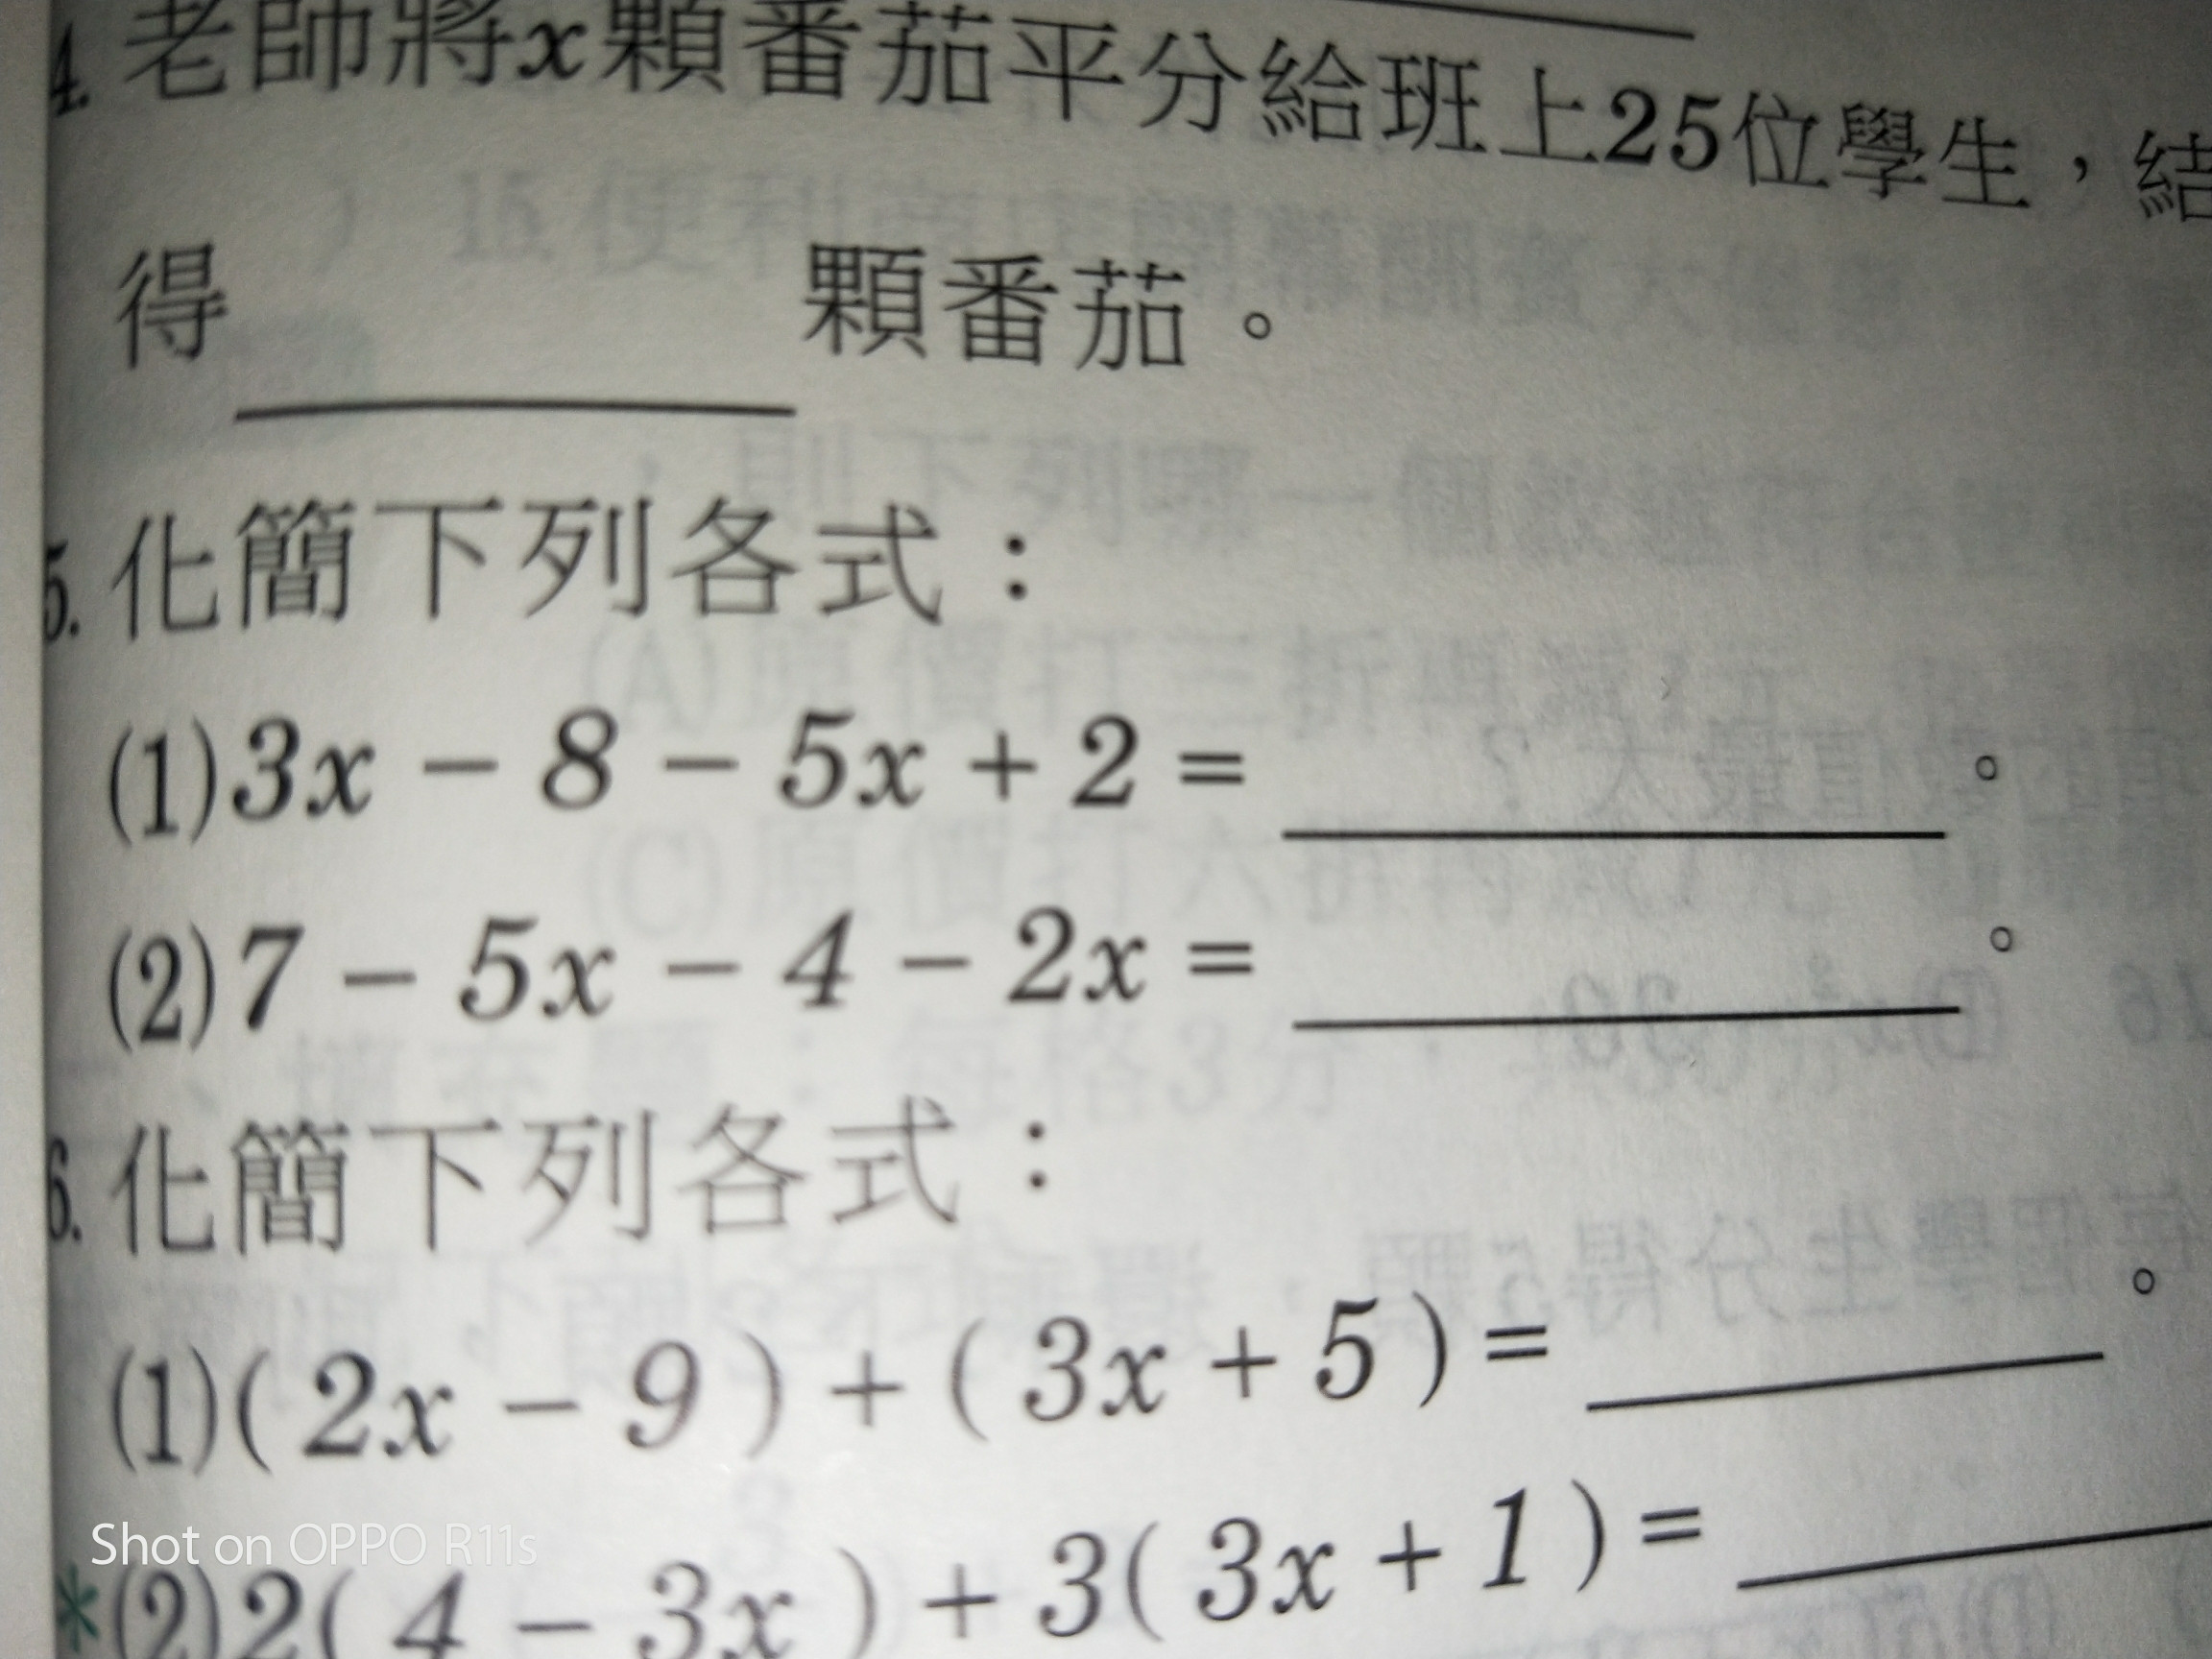 4. 老師將x顆番茄平分給班上25位學生，結
得________顆番茄。
5. 化簡下列各式：
(1) 3x － 8 － 5x ＋ 2 ＝ ________。
(2) 7 － 5x － 4 － 2x ＝ ________。
6. 化簡下列各式：
(1) ( 2x － 9 ) ＋ ( 3x ＋ 5 ) ＝ ________。
*(2) 2( 4 － 3x ) ＋ 3( 3x ＋ 1 ) ＝ ________
Shot on OPPO R11s